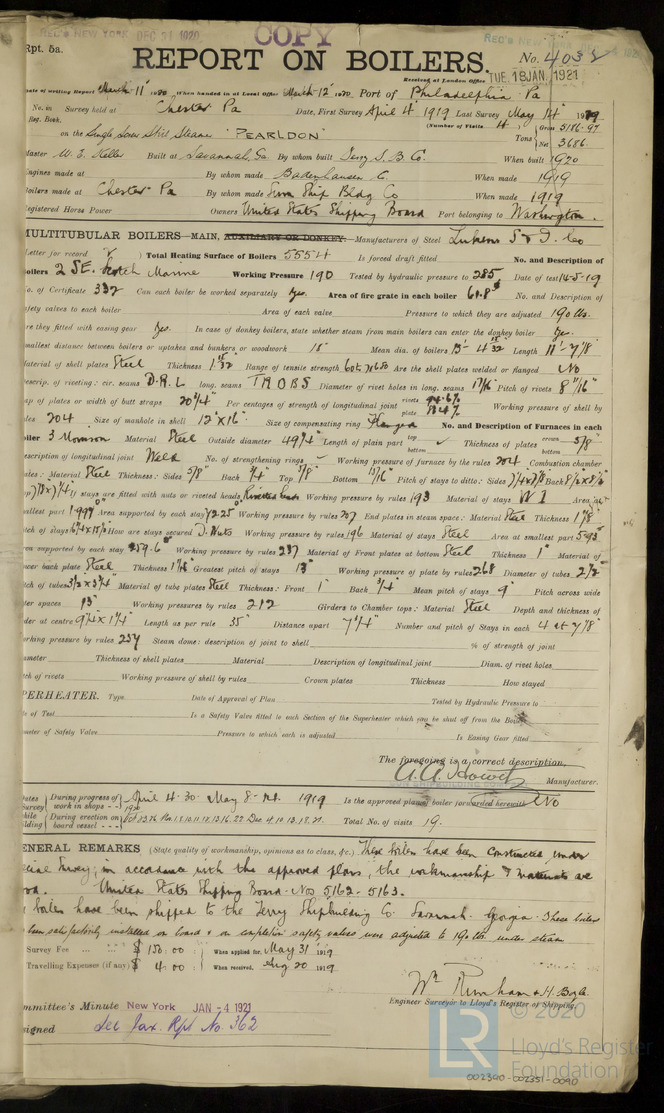 REC'D NEW YORK DEC 21 1920
COPY
REC'D NEW YORK
Rpt. 5a.
REPORT ON BOILERS.
No. 4032
Received at London Office TUE 18 JAN. 1921
Date of writing Report March 11 1920 When handed in at Local Office March 12 1920 Port of Philadelphia Pa
No. in Survey held at Chester Pa Date, First Survey April 4 1919 Last Survey May 14 1919
Reg. Book. (Number of Visits 4
on the Single Screw Steel Steamer "PEARLDON" Tons Gross 5186.97 Net 3686
Master Built at Savannah, Ga By whom built Terry S. B. Co. When built 1920
Engines made at By whom made Badenhausen C When made 1919
Boilers made at Chester Pa By whom made Sun Ship Bldg Co When made 1919
Registered Horse Power Owners United States Shipping Board Port belonging to Washington.
MULTITUBULAR BOILERS—MAIN, AUXILIARY OR DONKEY.—Manufacturers of Steel Lukens S & I. Co
Letter for record Total Heating Surface of Boilers 5554 Is forced draft fitted No. and Description of
Boilers 2 SE. Scotch Marine Working Pressure 190 Tested by hydraulic pressure to 285 Date of test 14-5-19
No. of Certificate 332 Can each boiler be worked separately Yes. Area of fire grate in each boiler 61.8 No. and Description of
safety valves to each boiler Area of each valve Pressure to which they are adjusted 190 lbs.
Are they fitted with easing gear Yes. In case of donkey boilers, state whether steam from main boilers can enter the donkey boiler Yes.
Smallest distance between boilers or uptakes and bunkers or woodwork 18" Mean dia. of boilers Length 11'-7 1/8"
Material of shell plates Steel Thickness 1 15/32 Range of tensile strength Are the shell plates welded or flanged No
Descrip. of riveting: cir. seams D.R.L long. seams T.R.D.B.S Diameter of rivet holes in long. seams 1 7/16 Pitch of rivets
Lap of plates or width of butt straps 20 1/4" Per centages of strength of longitudinal joint rivets plate Working pressure of shell by
rules 204 Size of manhole in shell 12" x 16" Size of compensating ring Flanged No. and Description of Furnaces in each
boiler 3 Morrison Material Steel Outside diameter 49 1/4" Length of plain part top bottom Thickness of plates crown bottom 5/8"
Description of longitudinal joint Weld No. of strengthening rings Working pressure of furnace by the rules 204 Combustion chamber
plates: Material Steel Thickness: Sides 5/8" Back 3/4" Top 5/8" Bottom 13/16" Pitch of stays to ditto: Sides Back
Top If stays are fitted with nuts or riveted heads Working pressure by rules 193 Material of stays W I Area at
smallest part 1.999 Area supported by each stay Working pressure by rules 207 End plates in steam space: Material Steel Thickness 1 1/8"
Pitch of stays How are stays secured D. Nuts Working pressure by rules 196 Material of stays Steel Area at smallest part
Area supported by each stay 259.6 Working pressure by rules 237 Material of Front plates at bottom Steel Thickness 1" Material of
Lower back plate Steel Thickness Greatest pitch of stays 13" Working pressure of plate by rules 268 Diameter of tubes 2 1/2"
Pitch of tubes Material of tube plates Steel Thickness: Front 1" Back 3/4" Mean pitch of stays 9" Pitch across wide
water spaces 13" Working pressures by rules 212 Girders to Chamber tops: Material Steel Depth and thickness of
girder at centre Length as per rule 35" Distance apart 7 1/4" Number and pitch of Stays in each 4 at 7 7/8"
Working pressure by rules 257 Steam dome: description of joint to shell % of strength of joint
Diameter Thickness of shell plates Material Description of longitudinal joint Diam. of rivet holes
Pitch of rivets Working pressure of shell by rules Crown plates Thickness How stayed
SUPERHEATER. Type Date of Approval of Plan Tested by Hydraulic Pressure to
Date of Test Is a Safety Valve fitted to each Section of the Superheater which can be shut off from the Boiler
Diameter of Safety Valve Pressure to which each is adjusted Is Easing Gear fitted
The foregoing is a correct description,
Manufacturer.
Dates of Survey while building During progress of work in shops - - April 4-30- May 8-14. 1919 Is the approved plan of boiler forwarded herewith No
During erection on board vessel - - - Total No. of visits 19.
GENERAL REMARKS (State quality of workmanship, opinions as to class, &c.) These boilers have been constructed under
Special Survey, in accordance with the approved plans, the workmanship & materials are
good. United States Shipping Board Nos 5162-5163.
boilers have been shipped to the Terry Shipbuilding Co. Savannah Georgia. These boilers
been satisfactorily installed on board & on completion safety valves were adjusted to 190 lbs. under steam
Survey Fee ... ... $ 150.00 When applied for, May 31 1919
Travelling Expenses (if any) $ 4.00 When received, Aug 20 1919
Engineer Surveyor to Lloyd's Register of Shipping.
Committee's Minute New York JAN -4 1921
Assigned See Jax. Rpt No. 362
LR
© 2020
Lloyd's Register
Foundation
002340-002351-0040